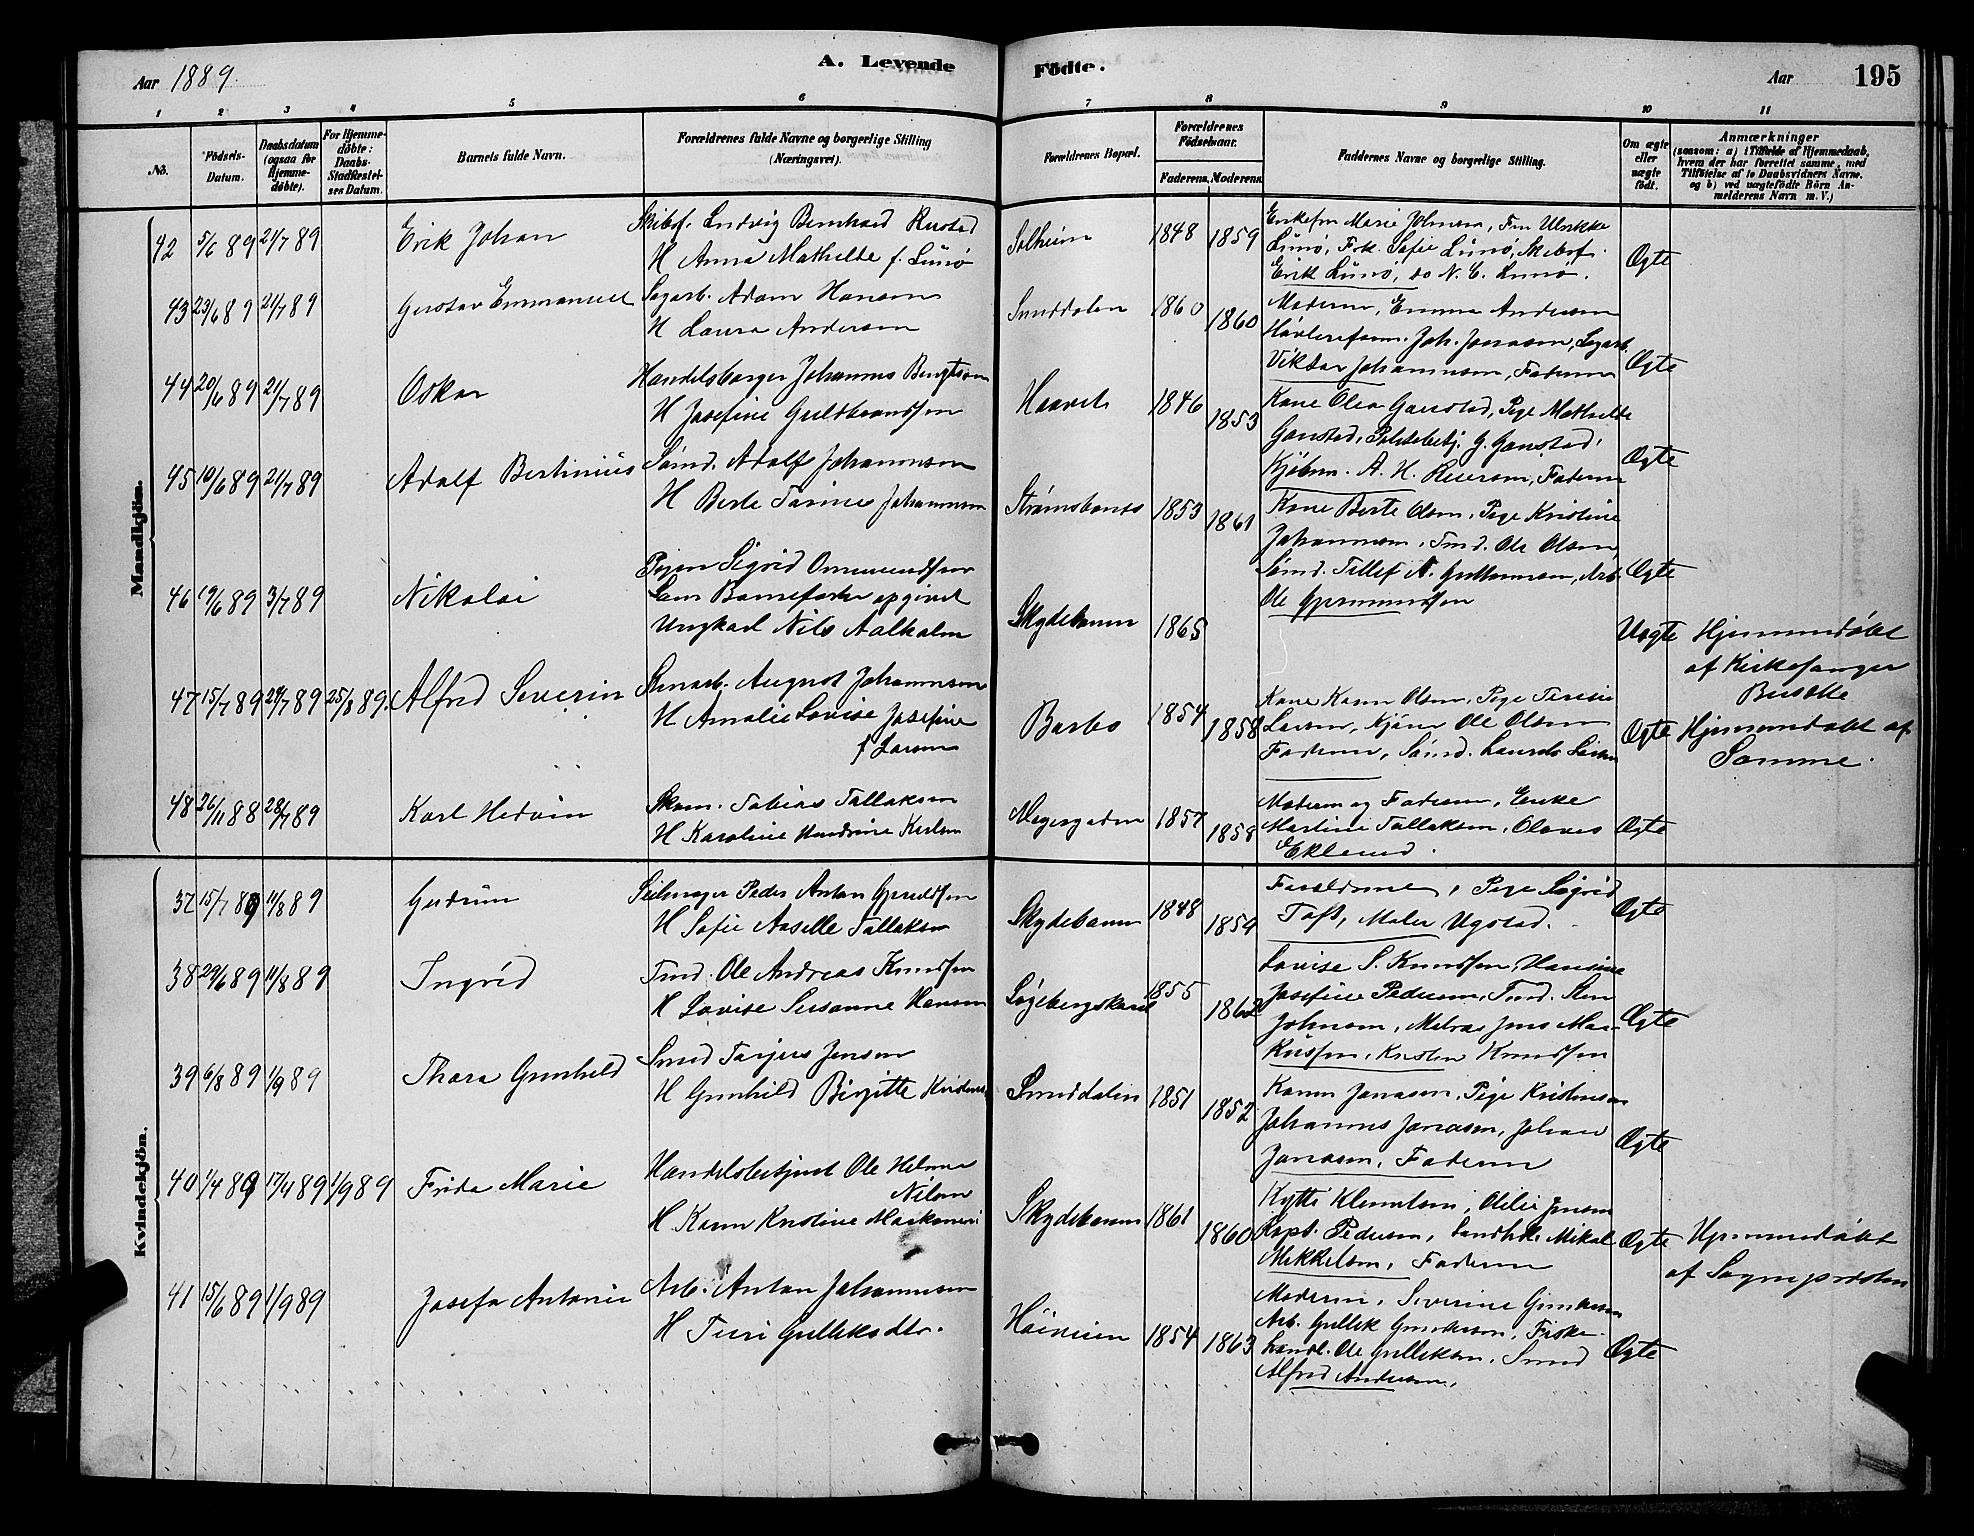 Aar 1889
A. Levende
Födte.
Aar 195
1 2 3 4 5 6 7 8 9 10 11
No.
Födsels-Datum.
Daabsdatum (ogsaa for Hjemmedöbte).
For Hjemmedöbte: Daabs-Stadfæstelses Datum.
Barnets fulde Navn.
Forældrenes fulde Navne og borgerlige Stilling (Næringsvei).
Forældrenes Bopæl.
Forældrenes Födselsaar.
Faderens. Moderens.
Faddernes Navne og borgerlige Stilling.
Om ægte eller uægte födt.
Anmærkninger
(saasom: a) i Tilfælde af Hjemmedaab,
hvem der har forrettet samme, med
Tilföielse af to Daabsvidners Navne.
og b) ved uægtefödte Börn An-
melderens Navn m. V.)
Mandkjön.
42 5/6 89 21/7 89 Erik Johan
Skibsf. Ludvig Bernhard Rustad
H Anna Mathilde f. Lunø
Solheim 1848 1859
Enkefru Marie Johnsen, Fru Ulrikke
Lunø, Frk. Sofie Lunø, Skibsf.
Erik Lunø, do N. C. Lunø.
Ægte
43 23/6 89 21/7 89 Gustav Emmanuel
Sagarb. Adam Hansen
H Laura Andersen
Smeddalen 1860 1860
Moderen, Emma Andersen
Høvlereform. Joh. Jonasen, Sagarb.
Viktor Johannesen, Faderen
Ægte
44 20/6 89 21/7 89 Oskar
Handelsborger Johannes Bengtson
H Josefine Guldbrandsen
Haavet 1846 1853
Kone Olea Ganstad, Pige Mathilde
Ganstad, Politibetj. G. Ganstad,
Kjøbm. A. H. Reiersen, Faderen
Ægte
45 10/6 89 21/7 89 Adolf Bertinius
Sømd. Adolf Johannesen
H Berte Tarine Johannesen
Strømsbunes 1853 1861
Kone Berte Olsen, Pige Kristine
Johannesen, Tmd. Ole Olsen,
Sømd. Tellef N. Guttormsen, Arb.
Ole Gjermundsen
Ægte
46 19/6 89 3/7 89 Nikolai
Pigen Sigrid Ommundsen
Som Barnefader opgivet
Ungkarl Nils Aalholm
Skydebanen 1865
Uægte
Hjemmedøbt
af Kirkesanger
47 15/7 89 24/7 89 25/8 89. Alfred Severin
Stenarb. August Johannesen
H Amalie Lovise Josefine
f Larsen
Barbo 1854 1858
Kone Karen Olsen, Pige Teresie
Larsen, Kjørm Ole Olsen
Faderen, Sømd. Laurits Larsen
Ægte
Hjemmedøbt af
Samme.
48 26/11 88 28/7 89 Karl Hedvin
Skom. Tobias Tallaksen
H Karoline Hendrine Karlsen
Meyergaden 1857 1858
Moderen og Faderen, Enke
Martine Tallaksen, Olaves
Eklund.
Ægte
Kvindekjön.
37 15/7 89 11/8 89 Gudrun
Seilmager Peder Anton Gjeruldsen
H Sofie Aaselle Tallaksen
Skydebanen 1848 1854
Forældrene, Pige Sigrid
Toft, Maler Ugstad.
Ægte
38 29/6 89 11/8 89 Ingrid
Tmd. Ole Andreas Knudsen
H Lovise Susanne Hansen
Løgebergskaret 1855 1862
Lovise S. Knudsen, Hansine
Josefine Pedersen, Tmd. Sten
Johnsen, Matros Jens Mar-
kussen, Kristen Knudsen
Ægte
39 6/8 89 1/9 89 Thora Gunhild
Smed Tarjus Jensen
H Gunhild Birgitte Kristens.
Smeddalen 1851 1852
Karen Jonasen, Pige Kristensen
Johannes Jonasen, Johan
Jonasen, Faderen
Ægte
40 1/4 89 17/4 89 1/9 89 Frida Marie
Handelsbetjent Ole Helmer
Nilsen
H Karen Kristine
Skydebanen 1861 1860
Kytte Klemetsen, Otilie Jensen
Kapt. Pedersen, Landh. Mikal
Mikkelsen, Faderen
Ægte
Hjemmedøbt
af Sognepresten
41 15/6 89 1/9 89 Josefa Antonie
Arb. Anton Johannesen
H Turi Gulleksdtr.
Høiveien 1854 1863
Moderen, Severine Gundersen
Arb. Gullik Gundersen, Fiske-
handl. Ole Gulliksen, Smed
Alfred Andersen,
Ægte